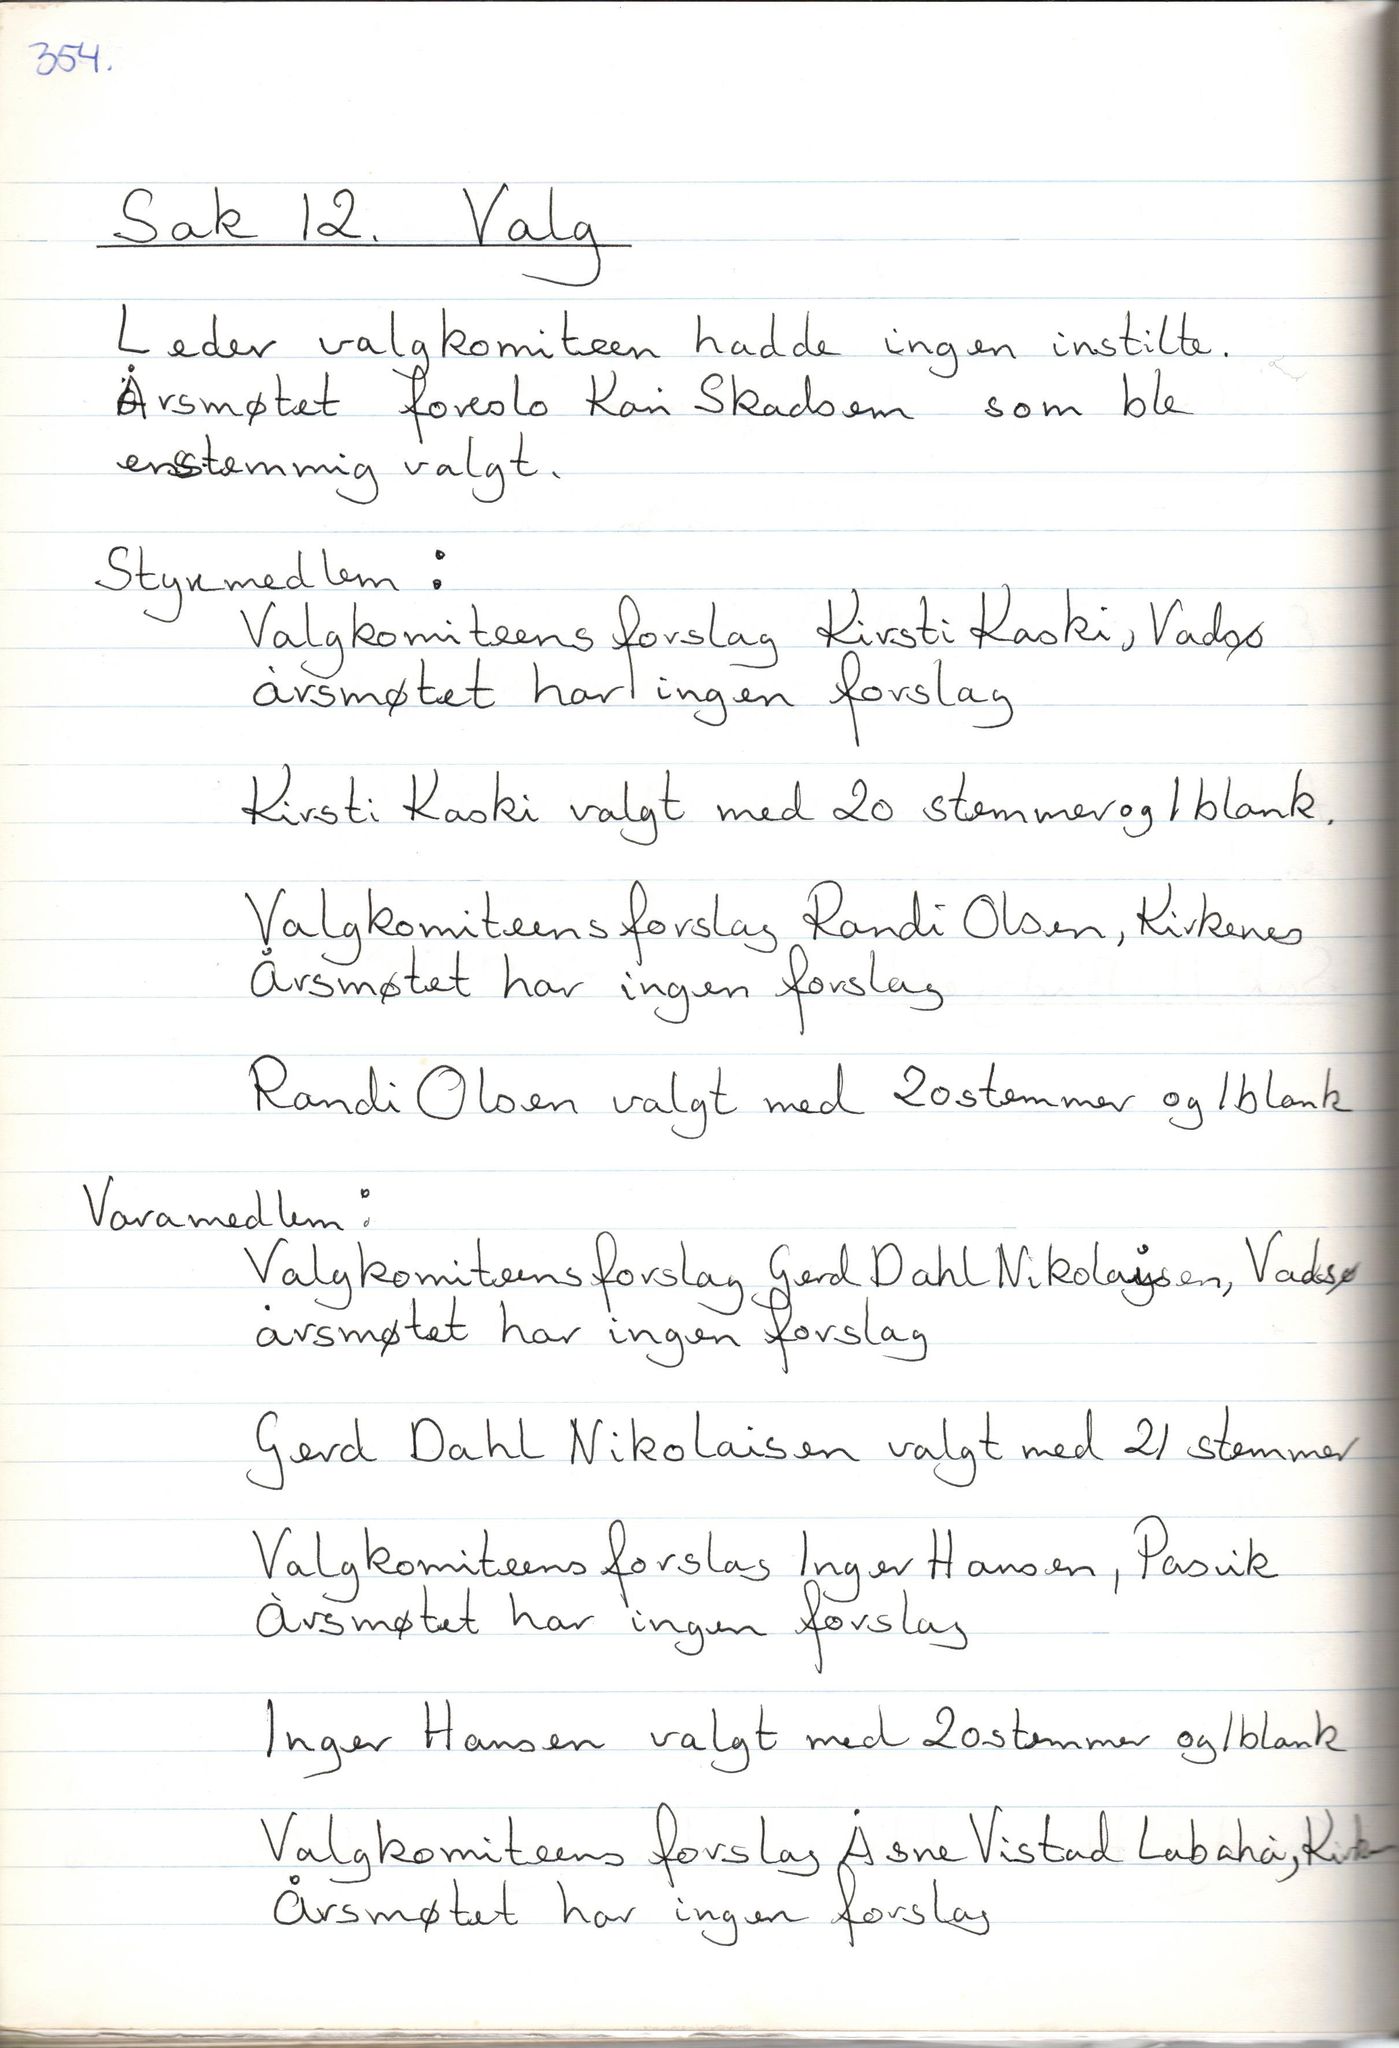 354.
Sak 12. Valg
Leder valgkomiteen hadde ingen instilte.
Årsmøtet foreslo Kai Skadsem som ble
enstemmig valgt.
Styremedlem :
Valgkomiteens forslag Kirsti Kaski, Vadsø
årsmøtet har ingen forslag
Kirsti Kaski valgt med 20 stemmer og 1 blank.
Valgkomiteens forslag Randi Olsen, Kirkenes
Årsmøtet har ingen forslag
Randi Olsen valgt med 20 stemmer og 1 blank
Varamedlem :
Valgkomiteens forslag Gerd Dahl Nikolaysen, Vadsø
årsmøtet har ingen forslag
Gerd Dahl Nikolaisen valgt med 21 stemmer
Valgkomiteens forslag Inger Hansen, Pasvik
Årsmøtet har ingen forslag
Inger Hansen valgt med 20 stemmer og 1 blank
Valgkomiteens forslag Åsne Vistad Labahå,
Årsmøtet har ingen forslag